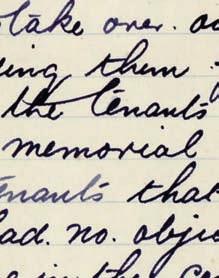 take over.
them
the tenants
memorial
tenants that
had. no.
in the